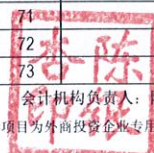 71
72
陈
73
会计机构负责人：
项目为外商投资企业专用